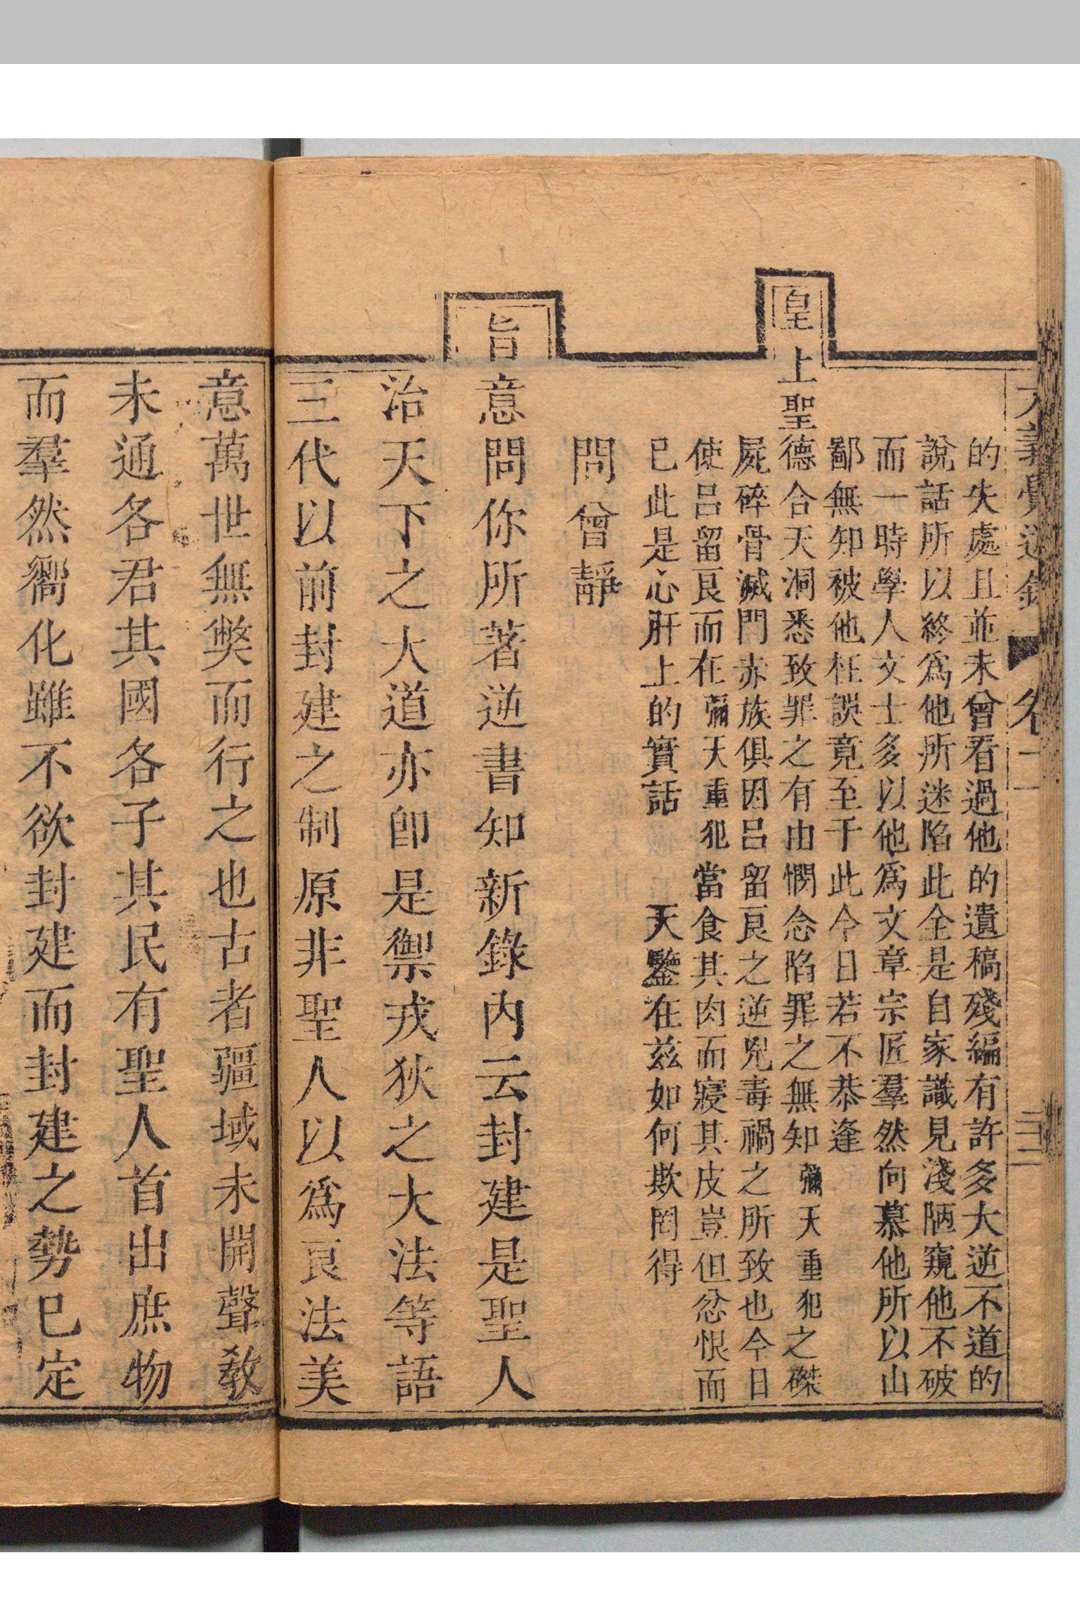 大義覺迷錄 卷二 三二
的失處且並未曾看過他的遺稿殘編有許多大逆不道的
說話所以終爲他所迷陷此全是自家識見淺陋窺他不破
而一時學人文士多以他爲文章宗匠羣然向慕他所以山
鄙無知被他枉誤竟至于此今日若不恭逢
皇上聖德合天洞悉致罪之有由憫念陷罪之無知彌天重犯之磔
屍碎骨滅門赤族俱因呂留良之逆兇毒禍之所致也今日
使呂留良而在彌天重犯當食其肉而寢其皮豈但忿恨而
已此是心肝上的實話 天鑒在茲如何欺罔得
問曾靜
旨意問你所著逆書知新錄內云封建是聖人
治天下之大道亦卽是禦戎狄之大法等語
三代以前封建之制原非聖人以爲良法美
意萬世無獘而行之也古者疆域未開聲敎
未通各君其國各子其民有聖人首出庶物
而羣然嚮化雖不欲封建而封建之勢已定